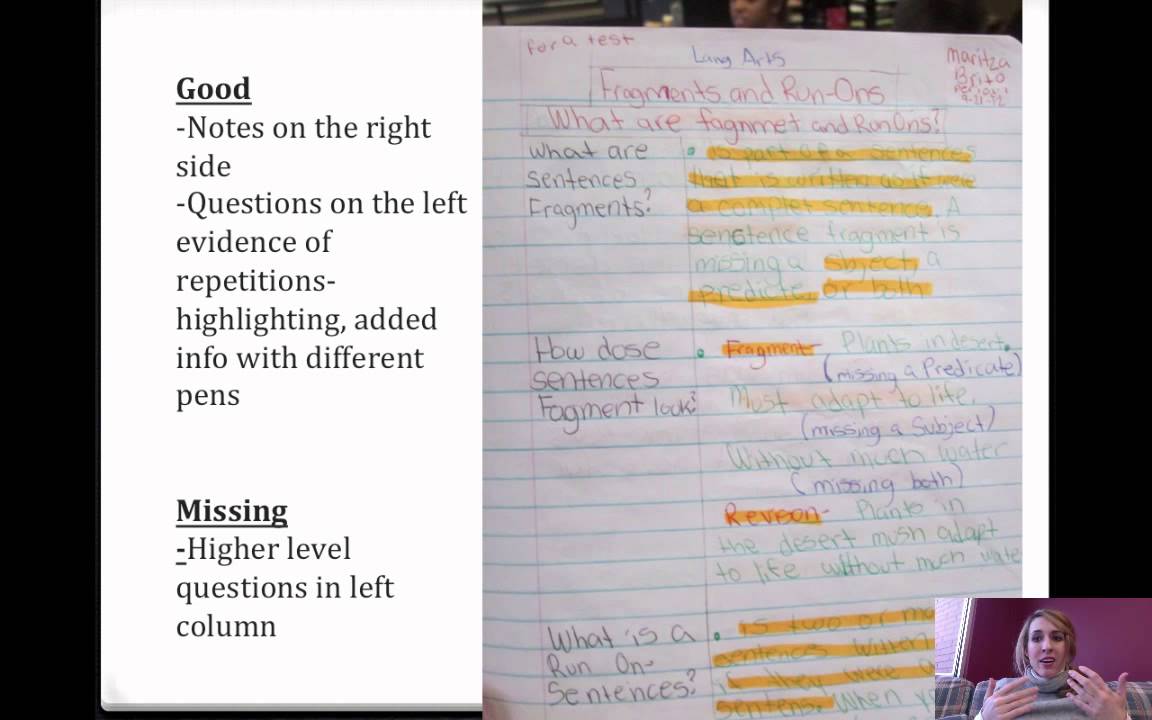 Good
-Notes on the right
side
-Questions on the left
evidence of
repetitions-
highlighting, added
info with different
pens
Missing
-Higher level
questions in left
column
for a test
Lang Arts
maritza
Brito
Fragments and Run-Ons
What are fagnmet and RunOns?
What are
sentences
Fragments?
• is part of a sentences
that is written as if were
a complet sentence. A
senctence fragment is
missing a sbject, a
predicte, or both
How dose
sentences
Fagment look?
• Fragment- Plants in desert.
(missing a Predicate)
Must adapt to life.
(missing a Subject)
Without much water
(missing both)
Reveson- Plants in
the desert mush adapt
to life without much wate
What is a
Run On-
Sentences?
• is two or mo
sentences Written
if they were a
sentens. When yo